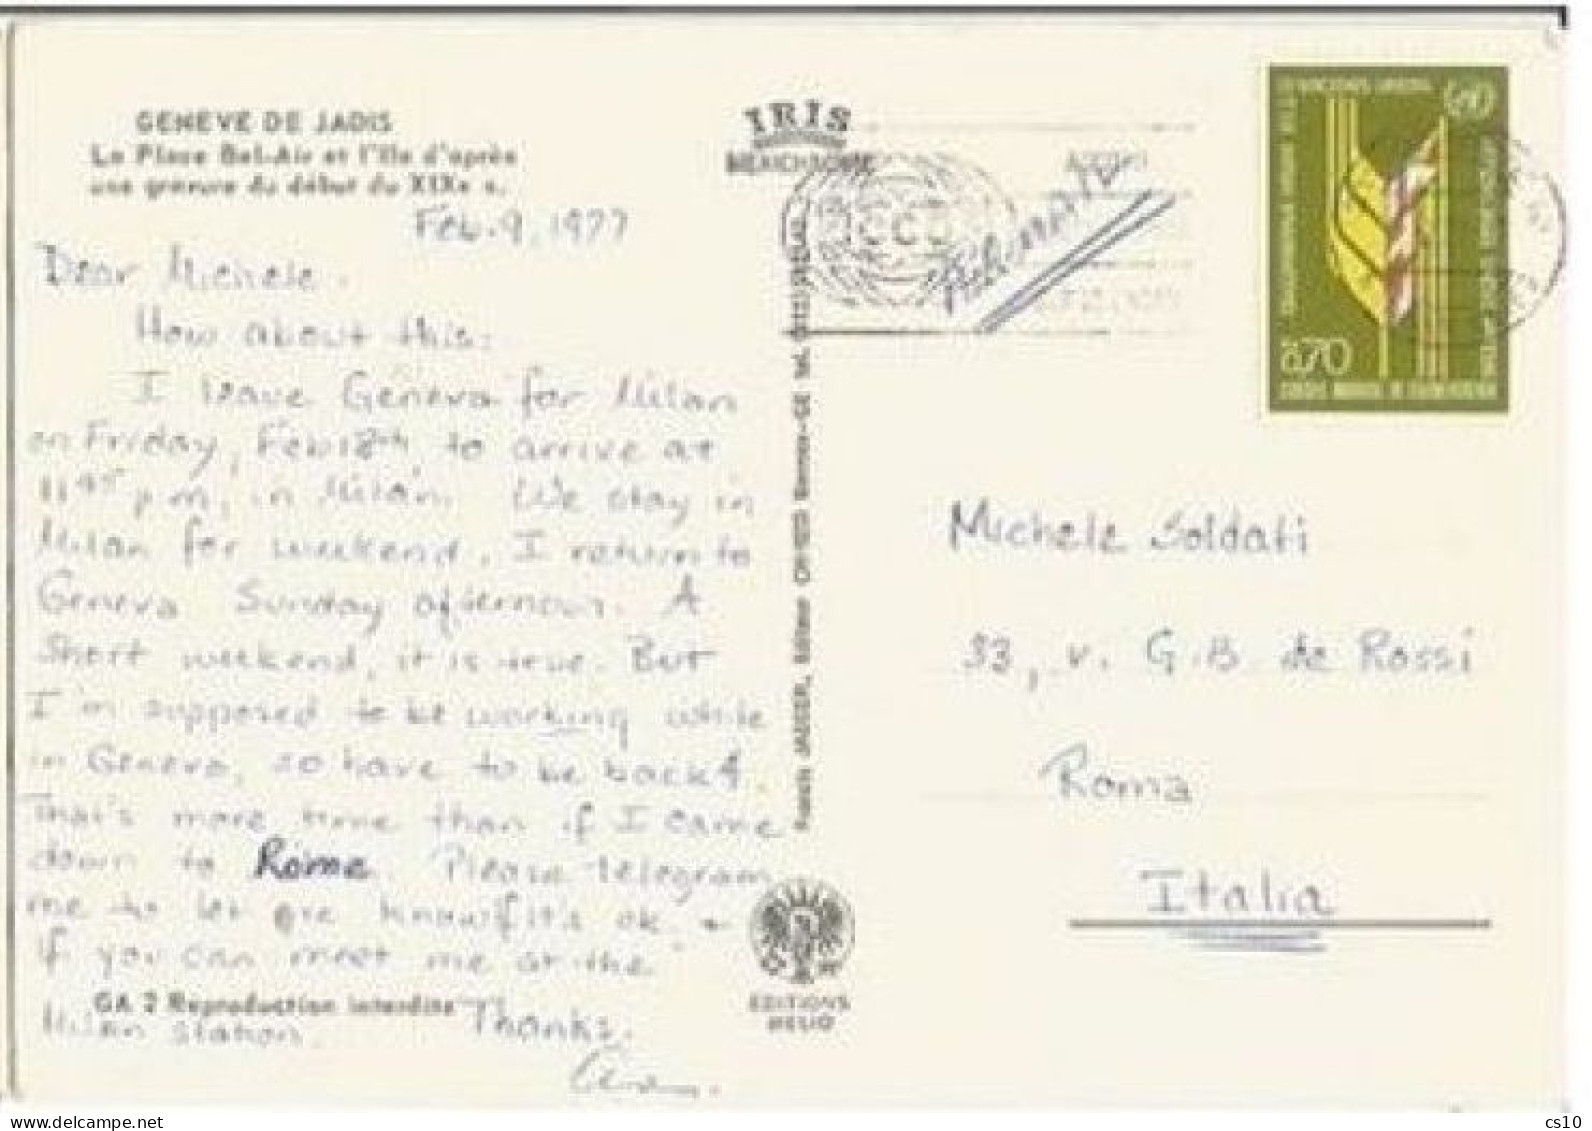 GENÈVE DE JADIS
La Place Bel-Air et l'Ile d'après
une gravure du début du XIXe s.
Feb. 9, 1977
Dear Michele.
How about this:
I leave Geneva for Milan
on Friday, Feb 18th, to arrive at
11 45 p.m. in Milan. We stay in
Milan for weekend. I return to
Geneva Sunday afternoon. A
short weekend, it is true. But
I'm supposed to be working while
in Geneva, so have to be back.
That's more time than if I came
down to Rome. Please telegram
me to let me know if it's ok +
if you can meet me at the
GA 2 Reproduction interdite
Milan station. Thanks.
IRIS
MEXICHROME
Francis JAEGER, Editeur Genève-GE Tel.
EDITIONS
HELIO
PAR AVION
0.70
Michele Soldati
53, v. G.B de Rossi
Roma
Italia
cs10